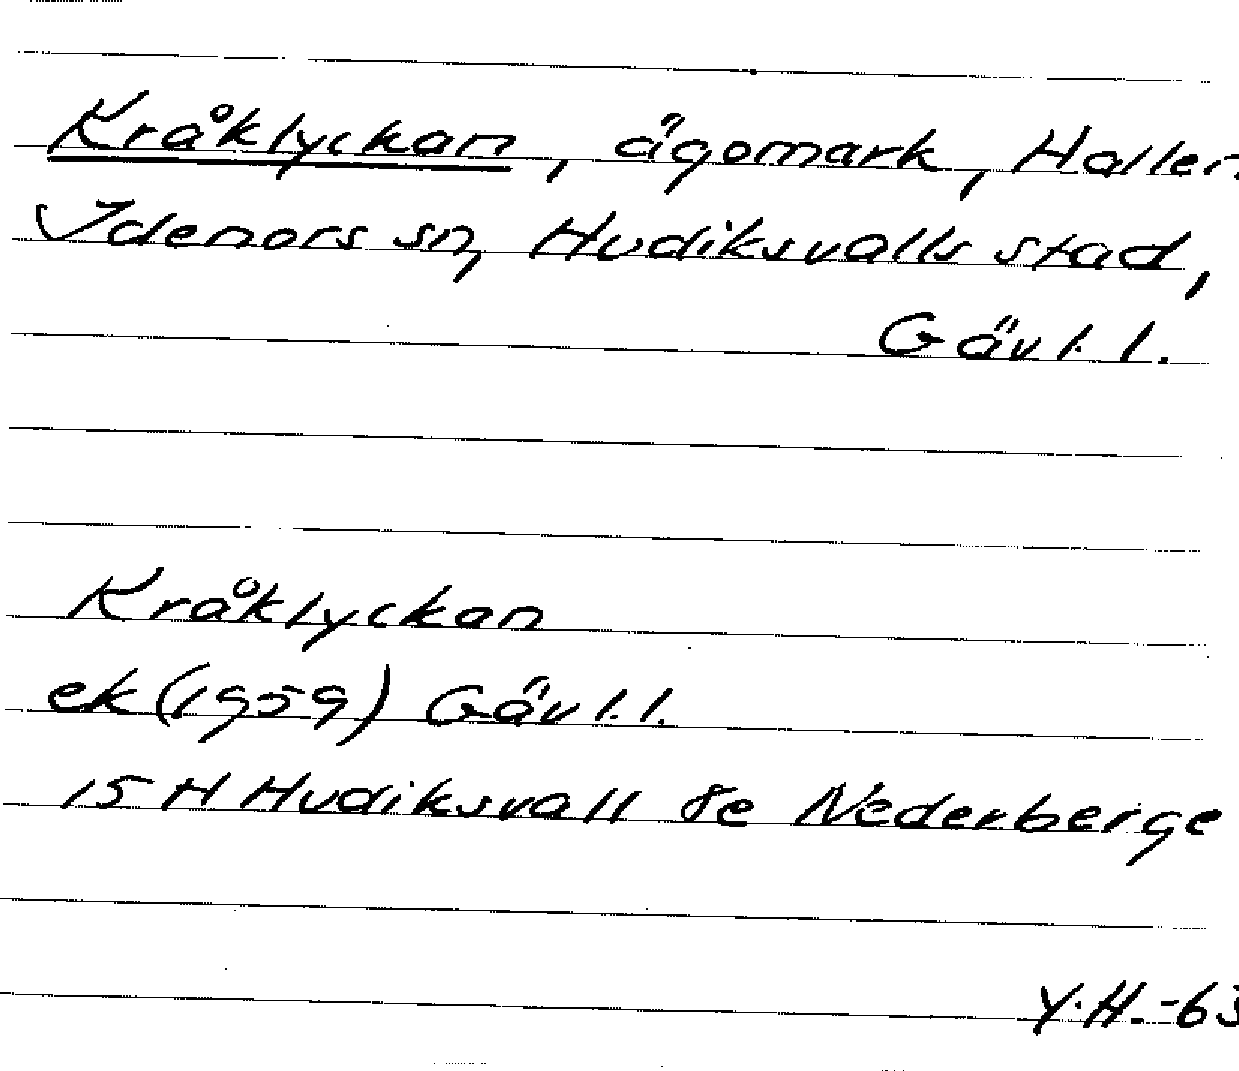 Kråklyckan, ägomark, Haller.
Idenors sn, Hudiksvalls stad,
Gävl. l.
Kråklyckan
ek (1959) Gävl. l.
15 H Hudiksvall 8e Nederberge
Y.H. -63